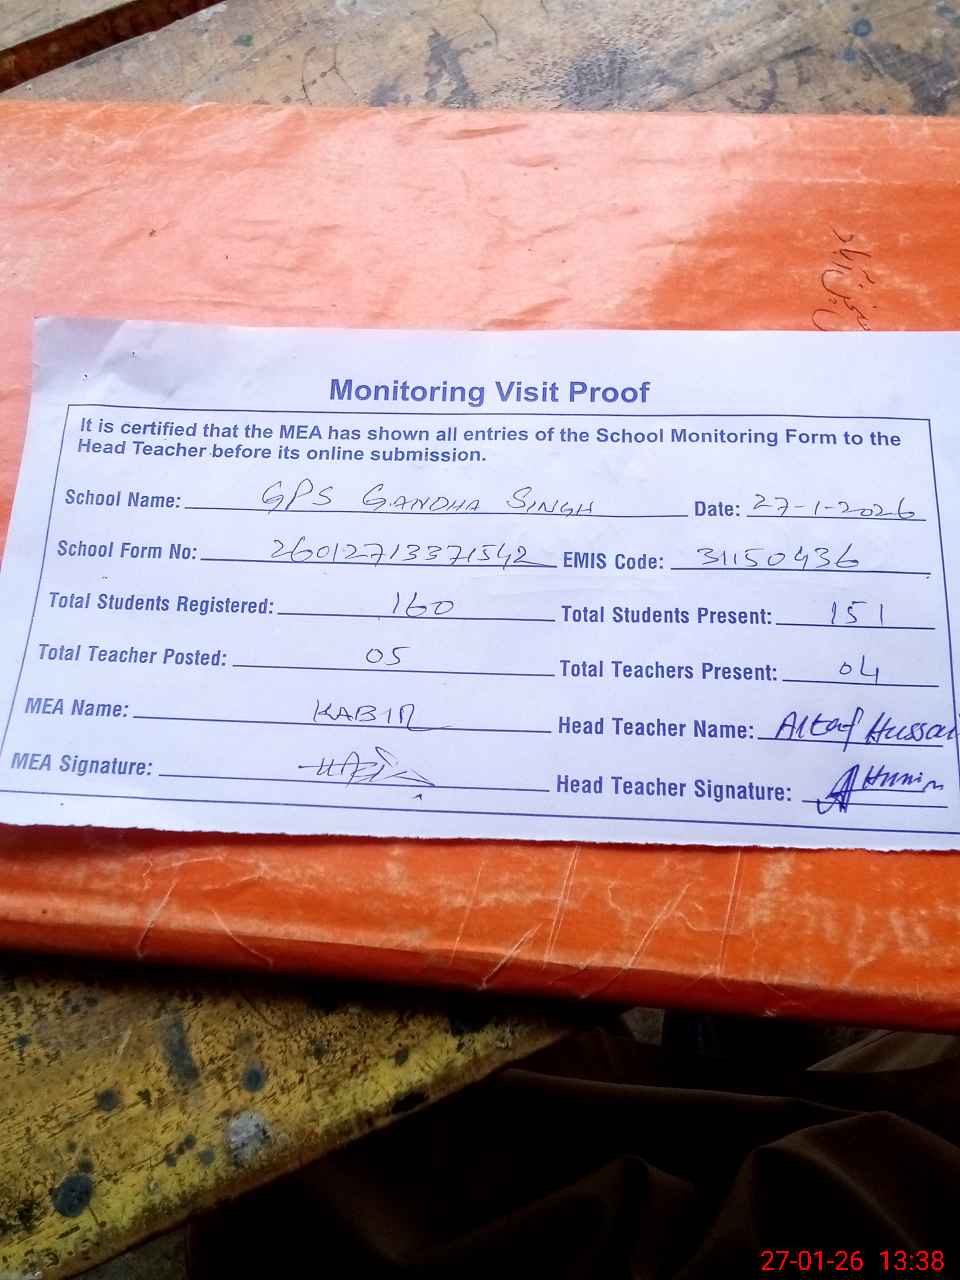 Monitoring Visit Proof
It is certified that the MEA has shown all entries of the School Monitoring Form to the
Head Teacher before its online submission.
School Name: GPS GANDHA SINGH Date: 27-1-2026
School Form No: 26012713371542 EMIS Code: 31150436
Total Students Registered: 160 Total Students Present: 151
Total Teacher Posted: 05 Total Teachers Present: 04
MEA Name: KABIR Head Teacher Name: Altaf Hussai
MEA Signature: Head Teacher Signature:
27-01-26 13:38